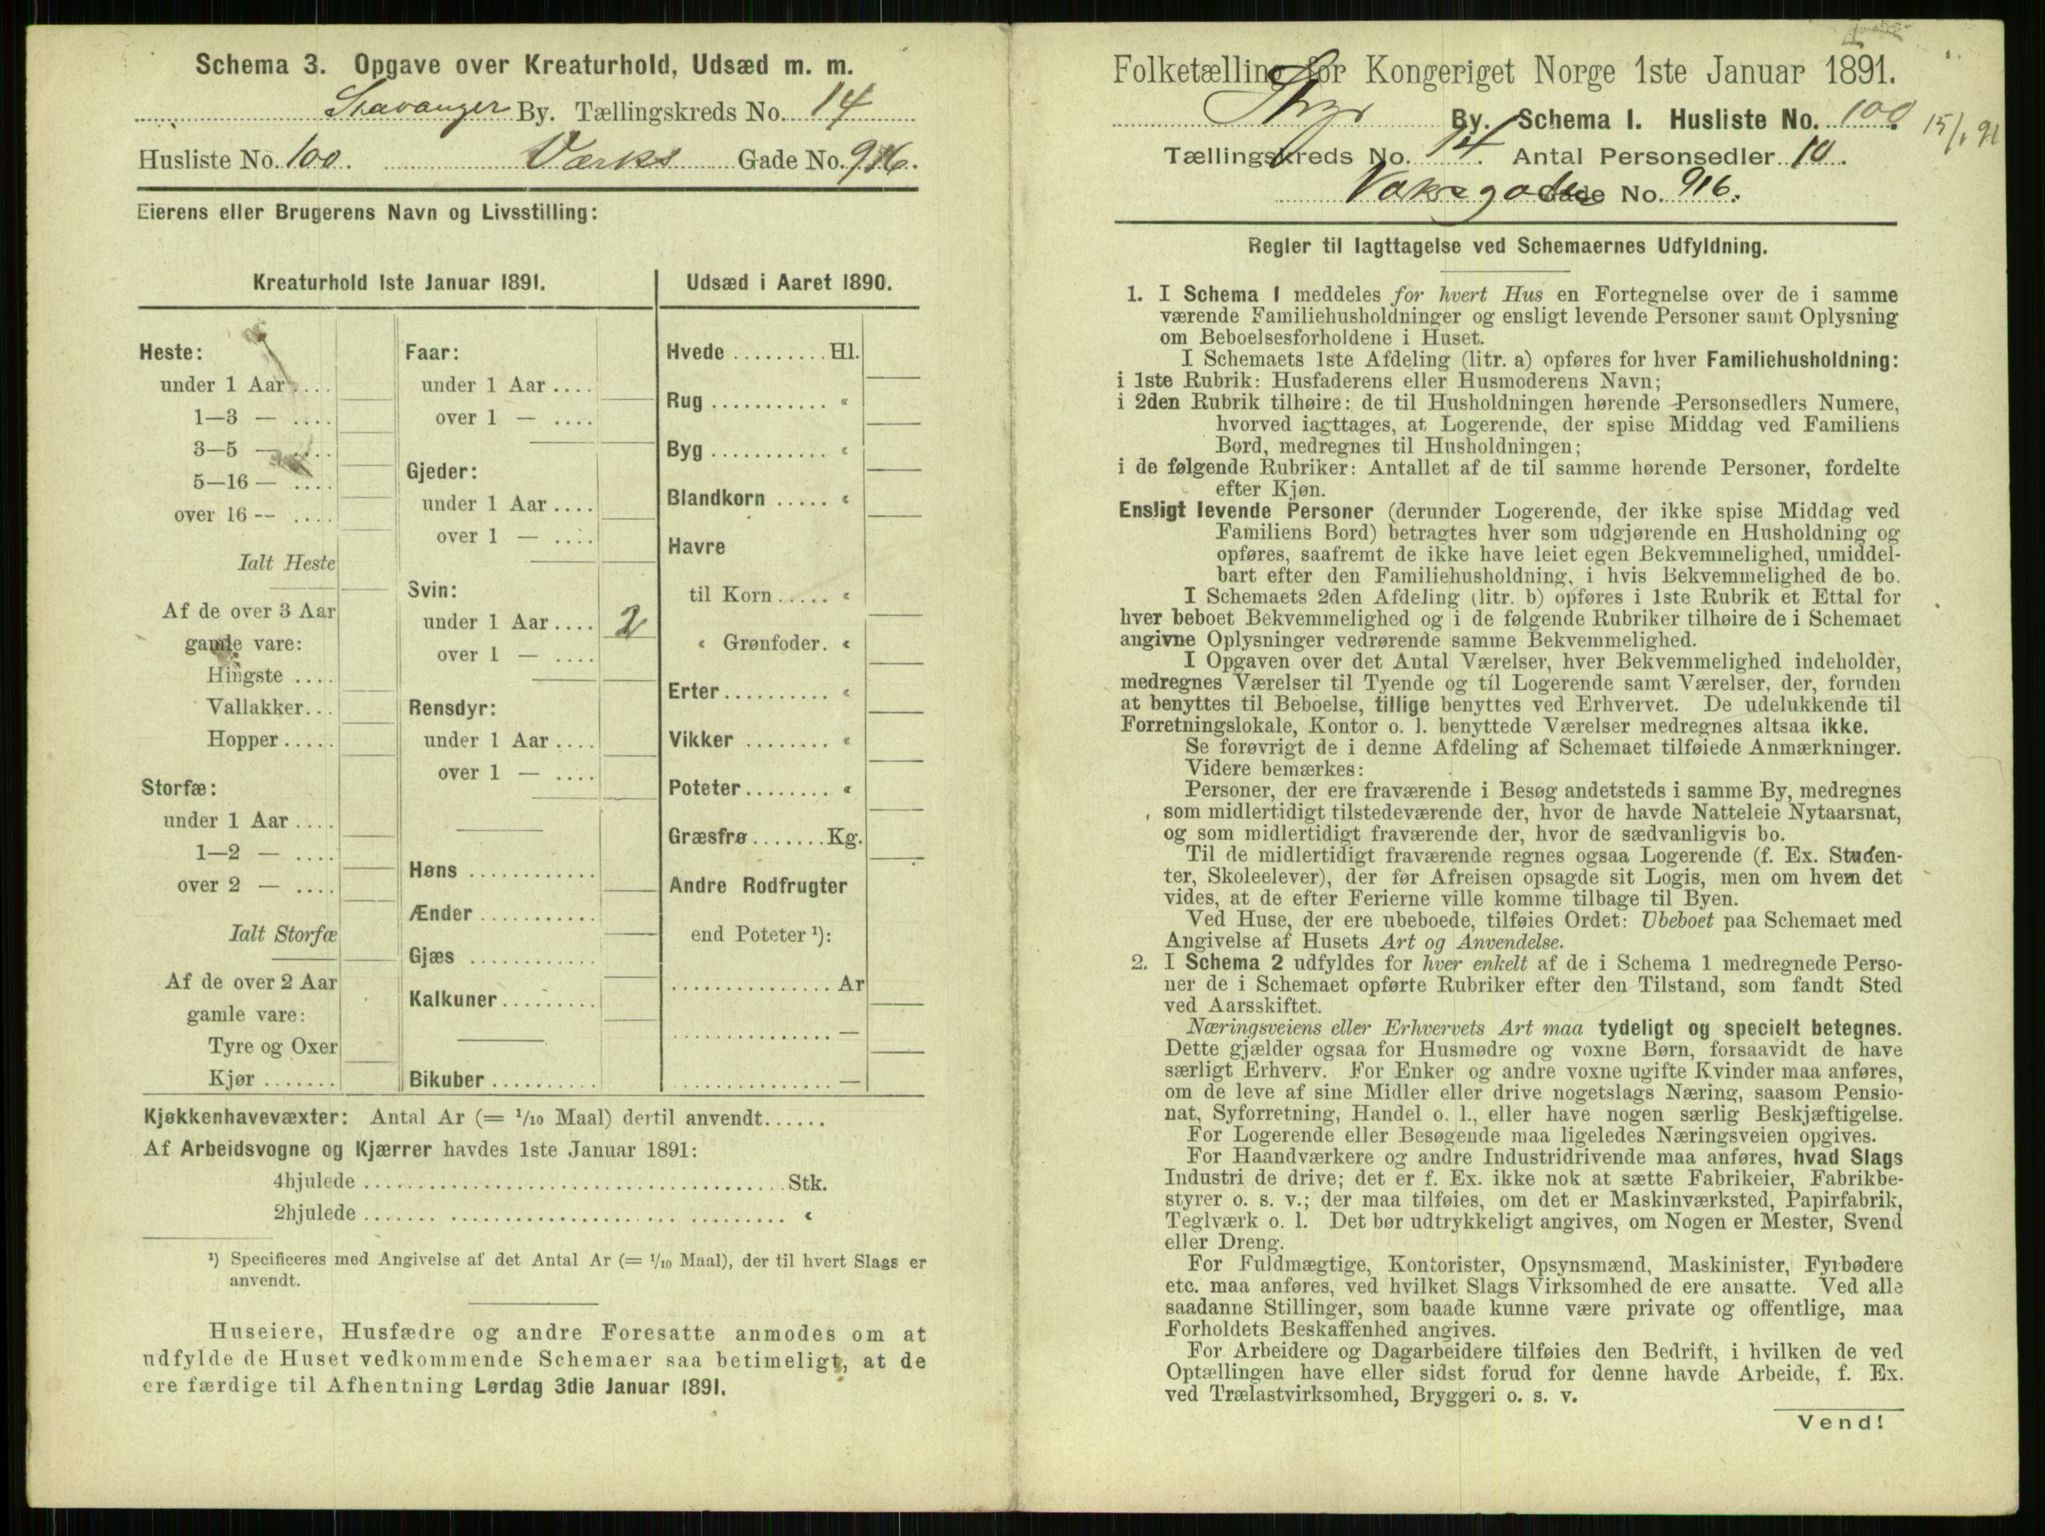 Schema 3. Opgave over Kreaturhold, Udsæd m. m.
Stavanger By. Tællingskreds No. 14
Husliste No. 100. Værks Gade No. 916.
Eierens eller Brugerens Navn og Livsstilling:
Kreaturhold 1ste Januar 1891.
Heste:
under 1 Aar ....
1—3 — ....
3—5 — ....
5—16 — ....
over 16 -- ....
Ialt Heste
Af de over 3 Aar
gamle vare:
Hingste ....
Vallakker...
Hopper .....
Storfæ:
under 1 Aar ....
1—2 — ....
over 2 — ....
Ialt Storfæ
Af de over 2 Aar
gamle vare:
Tyre og Oxer
Kjør .......
Faar:
under 1 Aar ....
over 1 — ....
Gjeder:
under 1 Aar ....
over 1 — ....
Svin:
under 1 Aar .... 2
over 1 — ....
Rensdyr:
under 1 Aar ....
over 1 — ....
Høns ............
Ænder ...........
Gjæs ............
Kalkuner.........
Bikuber ..........
Udsæd i Aaret 1890.
Hvede ......... Hl.
Rug ........... «
Byg ........... «
Blandkorn ..... «
Havre
til Korn ..... «
« Grønfoder. «
Erter .......... «
Vikker ........ «
Poteter ........ «
Græsfrø ....... Kg.
Andre Rodfrugter
end Poteter ¹):
............... Ar
............... —
............... —
Kjøkkenhavevæxter: Antal Ar (= 1/10 Maal) dertil anvendt......
Af Arbeidsvogne og Kjærrer havdes 1ste Januar 1891:
4hjulede ........................................ Stk.
2hjulede ........................................ «
¹) Specificeres med Angivelse af det Antal Ar (= 1/10 Maal), der til hvert Slags er
anvendt.
Huseiere, Husfædre og andre Foresatte anmodes om at
udfylde de Huset vedkommende Schemaer saa betimeligt, at de
ere færdige til Afhentning Lørdag 3die Januar 1891.
Folketælling for Kongeriget Norge 1ste Januar 1891.
By. Schema I. Husliste No. 100. 15/1 91
Tællingskreds No. 14. Antal Personsedler 10.
Gade No. 916.
Regler til Iagttagelse ved Schemaernes Udfyldning.
1. I Schema I meddeles for hvert Hus en Fortegnelse over de i samme
værende Familiehusholdninger og ensligt levende Personer samt Oplysning
om Beboelsesforholdene i Huset.
I Schemaets 1ste Afdeling (litr. a) opføres for hver Familiehusholdning:
i 1ste Rubrik: Husfaderens eller Husmoderens Navn;
i 2den Rubrik tilhøire: de til Husholdningen hørende Personsedlers Numere,
hvorved iagttages, at Logerende, der spise Middag ved Familiens
Bord, medregnes til Husholdningen;
i de følgende Rubriker: Antallet af de til samme hørende Personer, fordelte
efter Kjøn.
Ensligt levende Personer (derunder Logerende, der ikke spise Middag ved
Familiens Bord) betragtes hver som udgjørende en Husholdning og
opføres, saafremt de ikke have leiet egen Bekvemmelighed, umiddel-
bart efter den Familiehusholdning, i hvis Bekvemmelighed de bo.
I Schemaets 2den Afdeling (litr. b) opføres i 1ste Rubrik et Ettal for
hver beboet Bekvemmelighed og i de følgende Rubriker tilhøire de i Schemaet
angivne Oplysninger vedrørende samme Bekvemmelighed.
I Opgaven over det Antal Værelser, hver Bekvemmelighed indeholder,
medregnes Værelser til Tyende og til Logerende samt Værelser, der, foruden
at benyttes til Beboelse, tillige benyttes ved Erhvervet. De udelukkende til
Forretningslokale, Kontor o. l. benyttede Værelser medregnes altsaa ikke.
Se forøvrigt de i denne Afdeling af Schemaet tilføiede Anmærkninger.
Videre bemærkes:
Personer, der ere fraværende i Besøg andetsteds i samme By, medregnes
som midlertidigt tilstedeværende der, hvor de havde Natteleie Nytaarsnat,
og som midlertidigt fraværende der, hvor de sædvanligvis bo.
Til de midlertidigt fraværende regnes ogsaa Logerende (f. Ex. Studen-
ter, Skoleelever), der før Afreisen opsagde sit Logis, men om hvem det
vides, at de efter Ferierne ville komme tilbage til Byen.
Ved Huse, der ere ubeboede, tilføies Ordet: Ubeboet paa Schemaet med
Angivelse af Husets Art og Anvendelse.
2. I Schema 2 udfyldes for hver enkelt af de i Schema 1 medregnede Perso-
ner de i Schemaet opførte Rubriker efter den Tilstand, som fandt Sted
ved Aarsskiftet.
Næringsveiens eller Erhvervets Art maa tydeligt og specielt betegnes.
Dette gjælder ogsaa for Husmødre og voxne Børn, forsaavidt de have
særligt Erhverv. For Enker og andre voxne ugifte Kvinder maa anføres,
om de leve af sine Midler eller drive nogetslags Næring, saasom Pensio-
nat, Syforretning, Handel o. l., eller have nogen særlig Beskjæftigelse.
For Logerende eller Besøgende maa ligeledes Næringsveien opgives.
For Haandværkere og andre Industridrivende maa anføres, hvad Slags
Industri de drive; det er f. Ex. ikke nok at sætte Fabrikeier, Fabrikbe-
styrer o. s. v.; der maa tilføies, om det er Maskinværksted, Papirfabrik,
Teglværk o. l. Det bør udtrykkeligt angives, om Nogen er Mester, Svend
eller Dreng.
For Fuldmægtige, Kontorister, Opsynsmænd, Maskinister, Fyrbødere
etc. maa anføres, ved hvilket Slags Virksomhed de ere ansatte. Ved alle
saadanne Stillinger, som baade kunne være private og offentlige, maa
Forholdets Beskaffenhed angives.
For Arbeidere og Dagarbeidere tilføies den Bedrift, i hvilken de ved
Optællingen have eller sidst forud for denne havde Arbeide, f. Ex.
ved Trælastvirksomhed, Bryggeri o. s. v.
Vend!